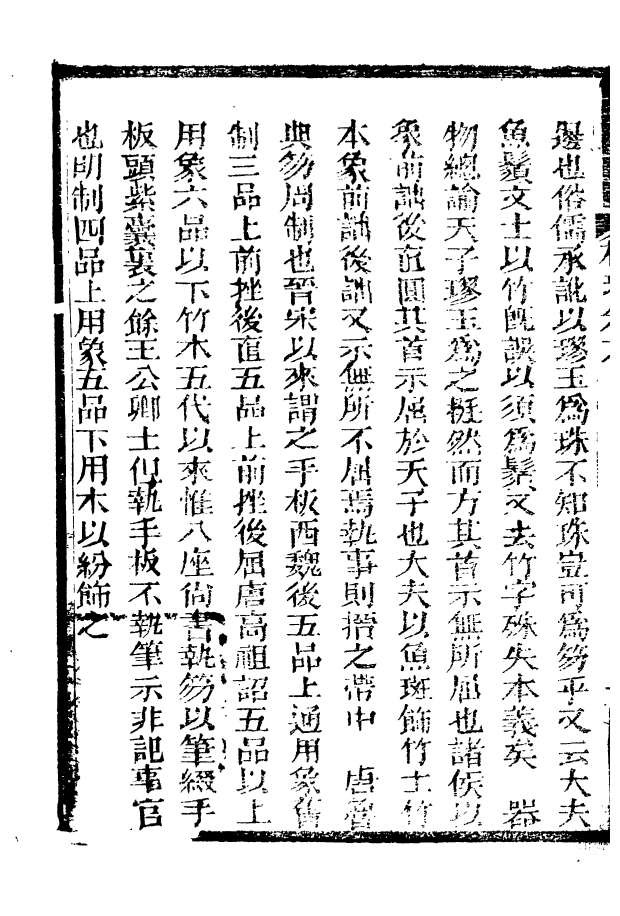 邊也俗儒承訛以璆玉爲珠不知珠豈可爲笏乎又云大夫
魚鬚文士以竹旣誤以須爲鬚又去竹字殊失本義矣　器
物總論天子璆玉爲之挺然而方其首示無所屈也諸侯以
象前詘後直圓其首示屈於天子也大夫以魚斑飾竹士竹
本象前詘後詘又示無所不屈焉執事則搢之帶中　唐會
典笏周制也晉宋以來謂之手板西魏後五品上通用象舊
制三品上前挫後直五品上前挫後屈唐高祖詔五品以上
用象六品以下竹木五代以來惟八座尙書執笏以筆綴手
板頭紫囊裹之餘王公卿士但執手板不執筆示非記事官
也明制四品上用象五品下用木以紛飾之